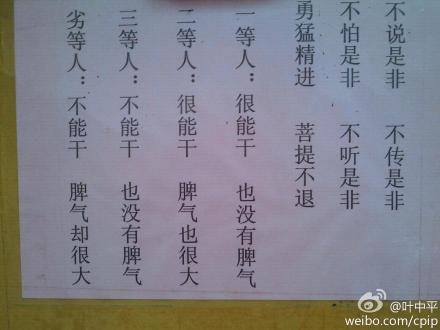 不说是非 不传是非
不怕是非 不听是非
勇猛精进 菩提不退
一等人：很能干 也没有脾气
二等人：很能干 脾气也很大
三等人：不能干 也没有脾气
劣等人：不能干 脾气却很大
@叶中平
weibo.com/cpip